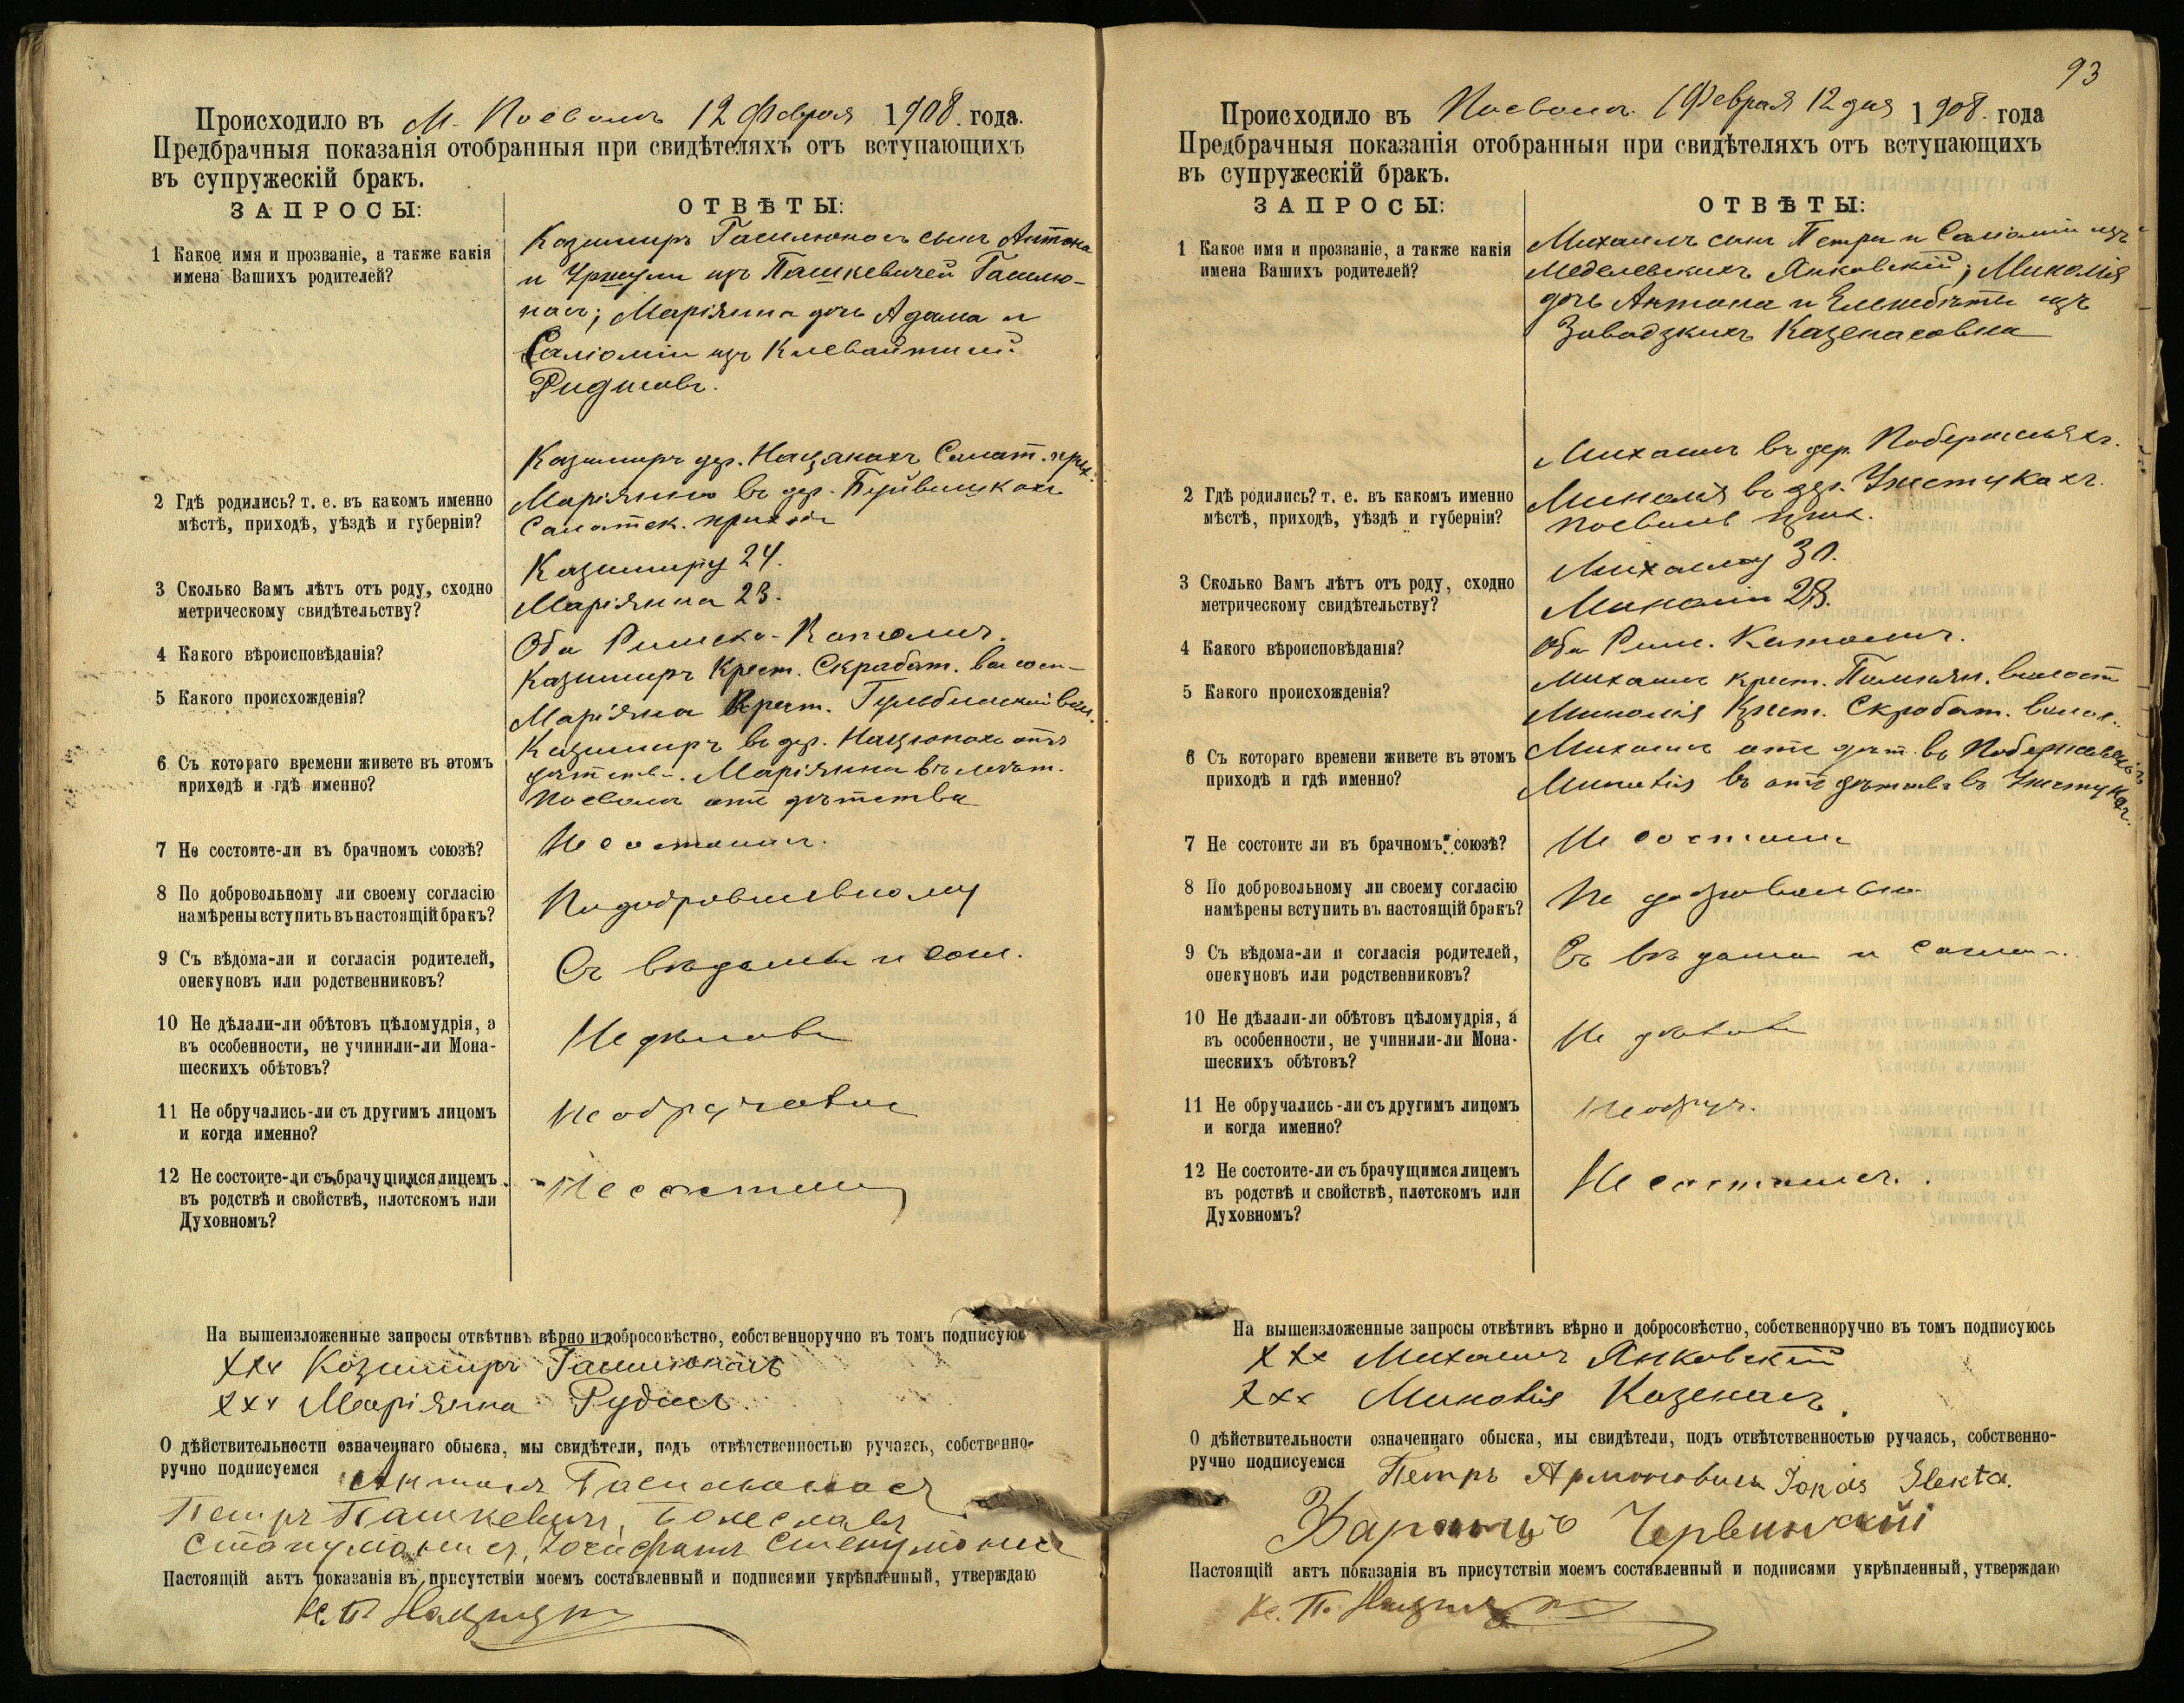 Происходило въ м. Посволь 12 Февраля 1908. года.
Предбрачныя показанія отобранныя при свидѣтеляхъ отъ вступающихъ
въ супружескій бракъ.
ЗАПРОСЫ:
ОТВѢТЫ:
1 Какое имя и прозваніе, а также какія
имена Вашихъ родителей?
Казимиръ Гасилюнасъ сынъ Антона
и Уршули изъ Пашкевичей Гасилю-
насъ; Маріянна дочь Адама и
Саліоміи изъ
2 Гдѣ родились? т. е. въ какомъ именно
мѣстѣ, приходѣ, уѣздѣ и губерніи?
Казимиръ дер. Салат. прих.
Маріянна въ дер.
Салатск. прихода
3 Сколько Вамъ лѣтъ отъ роду, сходно
метрическому свидѣтельству?
Казимиру 24.
Маріянна 23.
4 Какого вѣроисповѣданія?
Оба Римско-Католич.
5 Какого происхожденія?
Казимиръ Крест. Скрабат. волост-
Маріянна Крест. вол.
6 Съ котораго времени живете въ этомъ
приходѣ и гдѣ именно?
Казимиръ въ дер. отъ
дѣтства. Маріянна въ мѣст.
Посволь отъ дѣтства
7 Не состоите-ли въ брачномъ союзѣ?
Не состоимъ.
8 По добровольному ли своему согласію
намѣрены вступить въ настоящій бракъ?
По добровольному
9 Съ вѣдома-ли и согласія родителей,
опекуновъ или родственниковъ?
Съ вѣдома и согл.
10 Не дѣлали-ли обѣтовъ цѣломудрія, а
въ особенности, не учинили-ли Мона-
шескихъ обѣтовъ?
Не дѣлали
11 Не обручались-ли съ другимъ лицомъ
и когда именно?
Не обручались
12 Не состоите-ли съ брачущимся лицемъ
въ родствѣ и свойствѣ, плотскомъ или
Духовномъ?
Не состоимъ
На вышеизложенные запросы отвѣтивъ вѣрно и добросовѣстно, собственноручно въ томъ подписуюсь
ххх Казимиръ Гасилюнасъ
ххх Маріянна
О дѣйствительности означеннаго обыска, мы свидѣтели, подъ отвѣтственностью ручаясь, собственно-
ручно подписуемся Антонъ Гасилюнасъ
Петръ Пашкевичъ, Болеславъ
Настоящій актъ показанія въ присутствіи моемъ составленный и подписями укрѣпленный, утверждаю
Кс. П.
93
Происходило въ Посволь. Февраля 12 дня 1908. года
Предбрачныя показанія отобранныя при свидѣтеляхъ отъ вступающихъ
въ супружескій бракъ.
ЗАПРОСЫ:
ОТВѢТЫ:
1 Какое имя и прозваніе, а также какія
имена Вашихъ родителей?
Михаилъ сынъ Петра и Саліоміи изъ
Янковскій;
дочь Антона и Елисабеты изъ
Завадзкихъ
2 Гдѣ родились? т. е. въ какомъ именно
мѣстѣ, приходѣ, уѣздѣ и губерніи?
Михаилъ въ дер.
въ дер.
Посволь прих.
3 Сколько Вамъ лѣтъ отъ роду, сходно
метрическому свидѣтельству?
Михаилу 30.
28.
4 Какого вѣроисповѣданія?
Оба Рим. Католич.
5 Какого происхожденія?
Михаилъ крест. волост
Крест. Скрабат. волос.
6 Съ котораго времени живете въ этомъ
приходѣ и гдѣ именно?
Михаилъ отъ дѣт. въ
отъ дѣтства въ
7 Не состоите ли въ брачномъ союзѣ?
Не состоимъ
8 По добровольному ли своему согласію
намѣрены вступить въ настоящій бракъ?
По добровольно
9 Съ вѣдома-ли и согласія родителей,
опекуновъ или родственниковъ?
Съ вѣдома и соглас.
10 Не дѣлали-ли обѣтовъ цѣломудрія, а
въ особенности, не учинили-ли Мона-
шескихъ обѣтовъ?
Не дѣлали
11 Не обручались-ли съ другимъ лицомъ
и когда именно?
Не обруч.
12 Не состоите-ли съ брачущимся лицемъ
въ родствѣ и свойствѣ, плотскомъ или
Духовномъ?
Не состоимъ.
На вышеизложенные запросы отвѣтивъ вѣрно и добросовѣстно, собственноручно въ томъ подписуюсь
ххх Михаилъ Янковскій
ххх
О дѣйствительности означеннаго обыска, мы свидѣтели, подъ отвѣтственностью ручаясь, собственно-
ручно подписуемся Петръ Jonas Slekta.
Червинскій
Настоящій актъ показанія въ присутствіи моемъ составленный и подписями укрѣпленный, утверждаю
Кс. П.